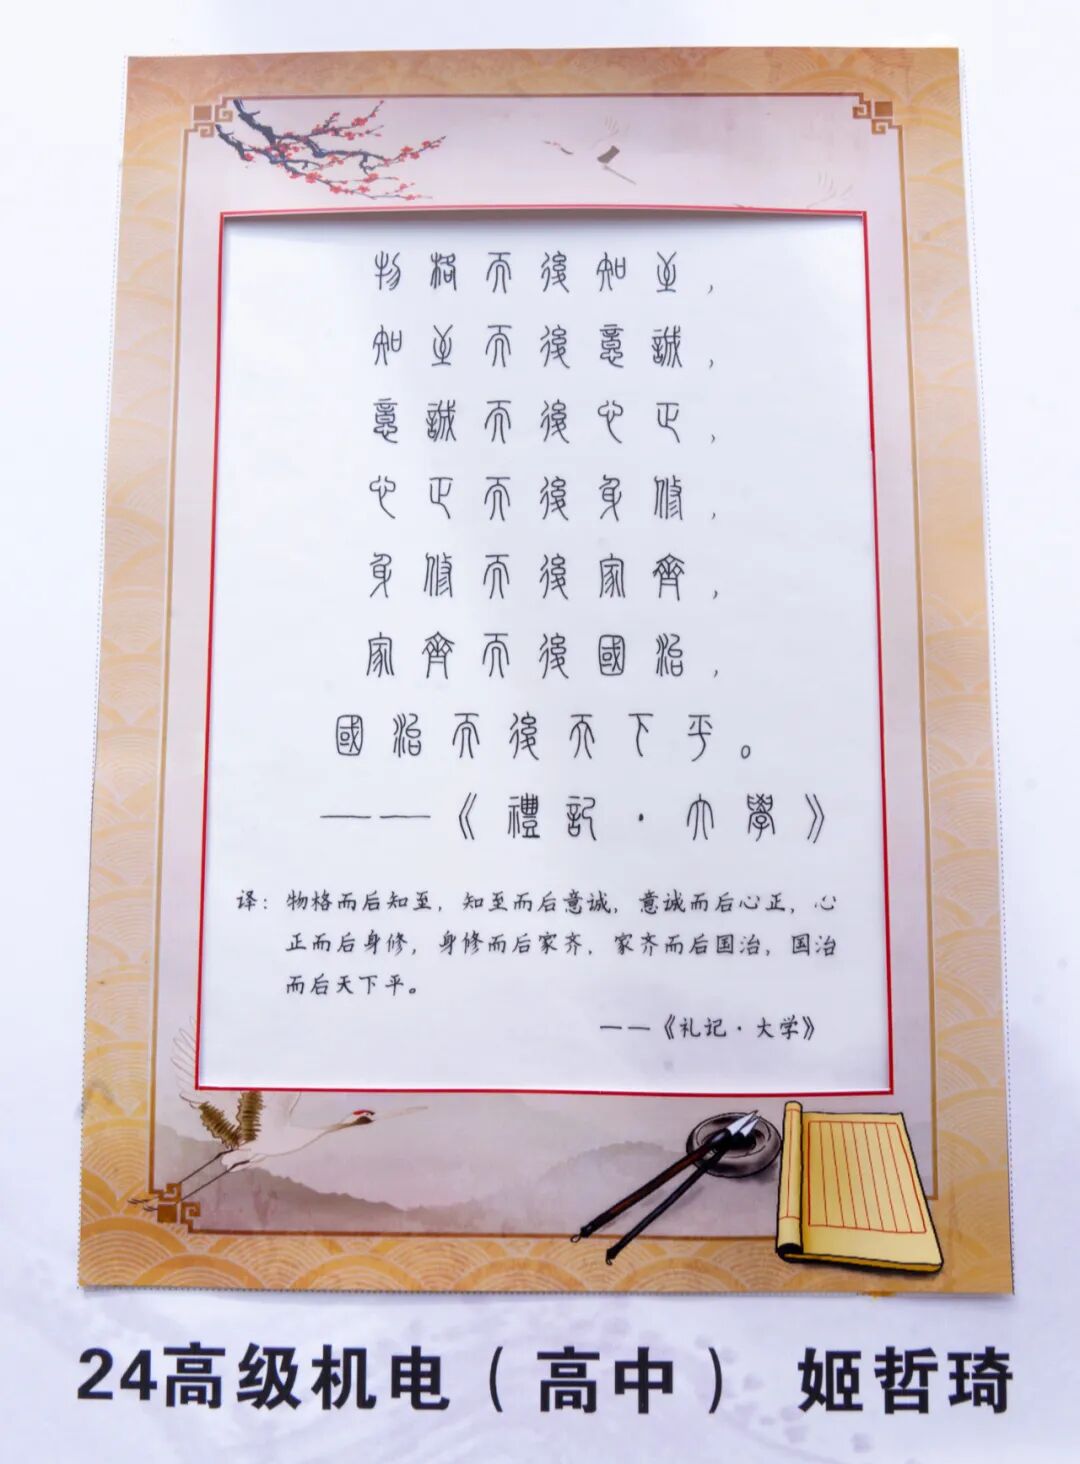 物格而後知至，
知至而後意誠，
意誠而後心正，
心正而後身修，
身修而後家齊，
家齊而後國治，
國治而後天下平。
——《禮記·大學》
译：物格而后知至，知至而后意诚，意诚而后心正，心
正而后身修，身修而后家齐，家齐而后国治，国治
而后天下平。
——《礼记·大学》
24高级机电（高中） 姬哲琦